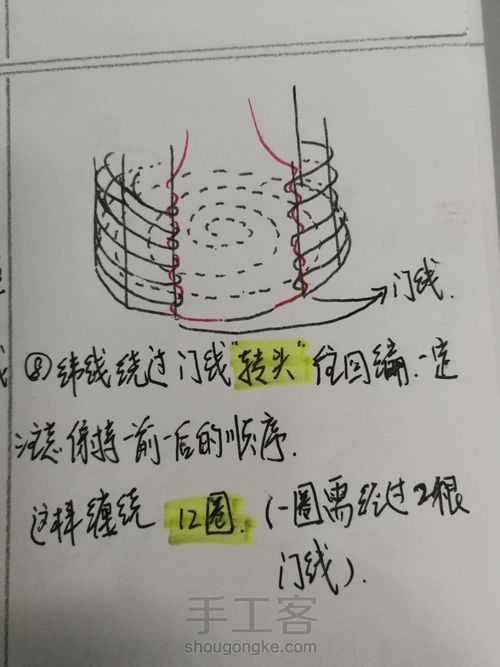 门线.
⑧纬线绕过门线"转头"往回编.一定
注意保持一前一后的顺序.
这样缠绕 12圈.(一圈需经过2根
门线).
手工客
shougongke.com